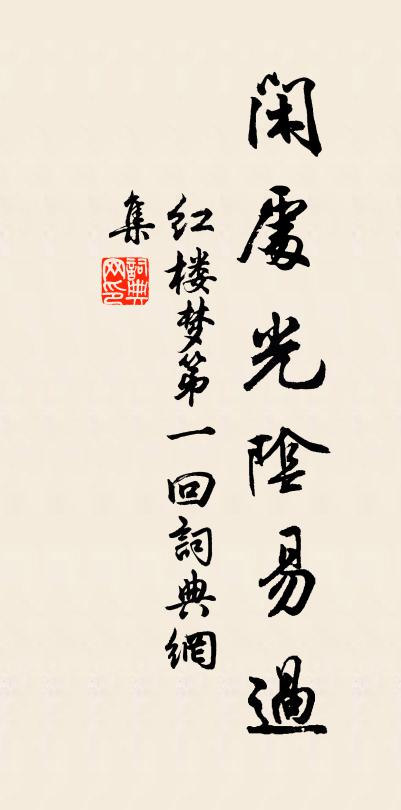 閑處光陰易過
红楼梦第一回詞典網
集
詞典网印